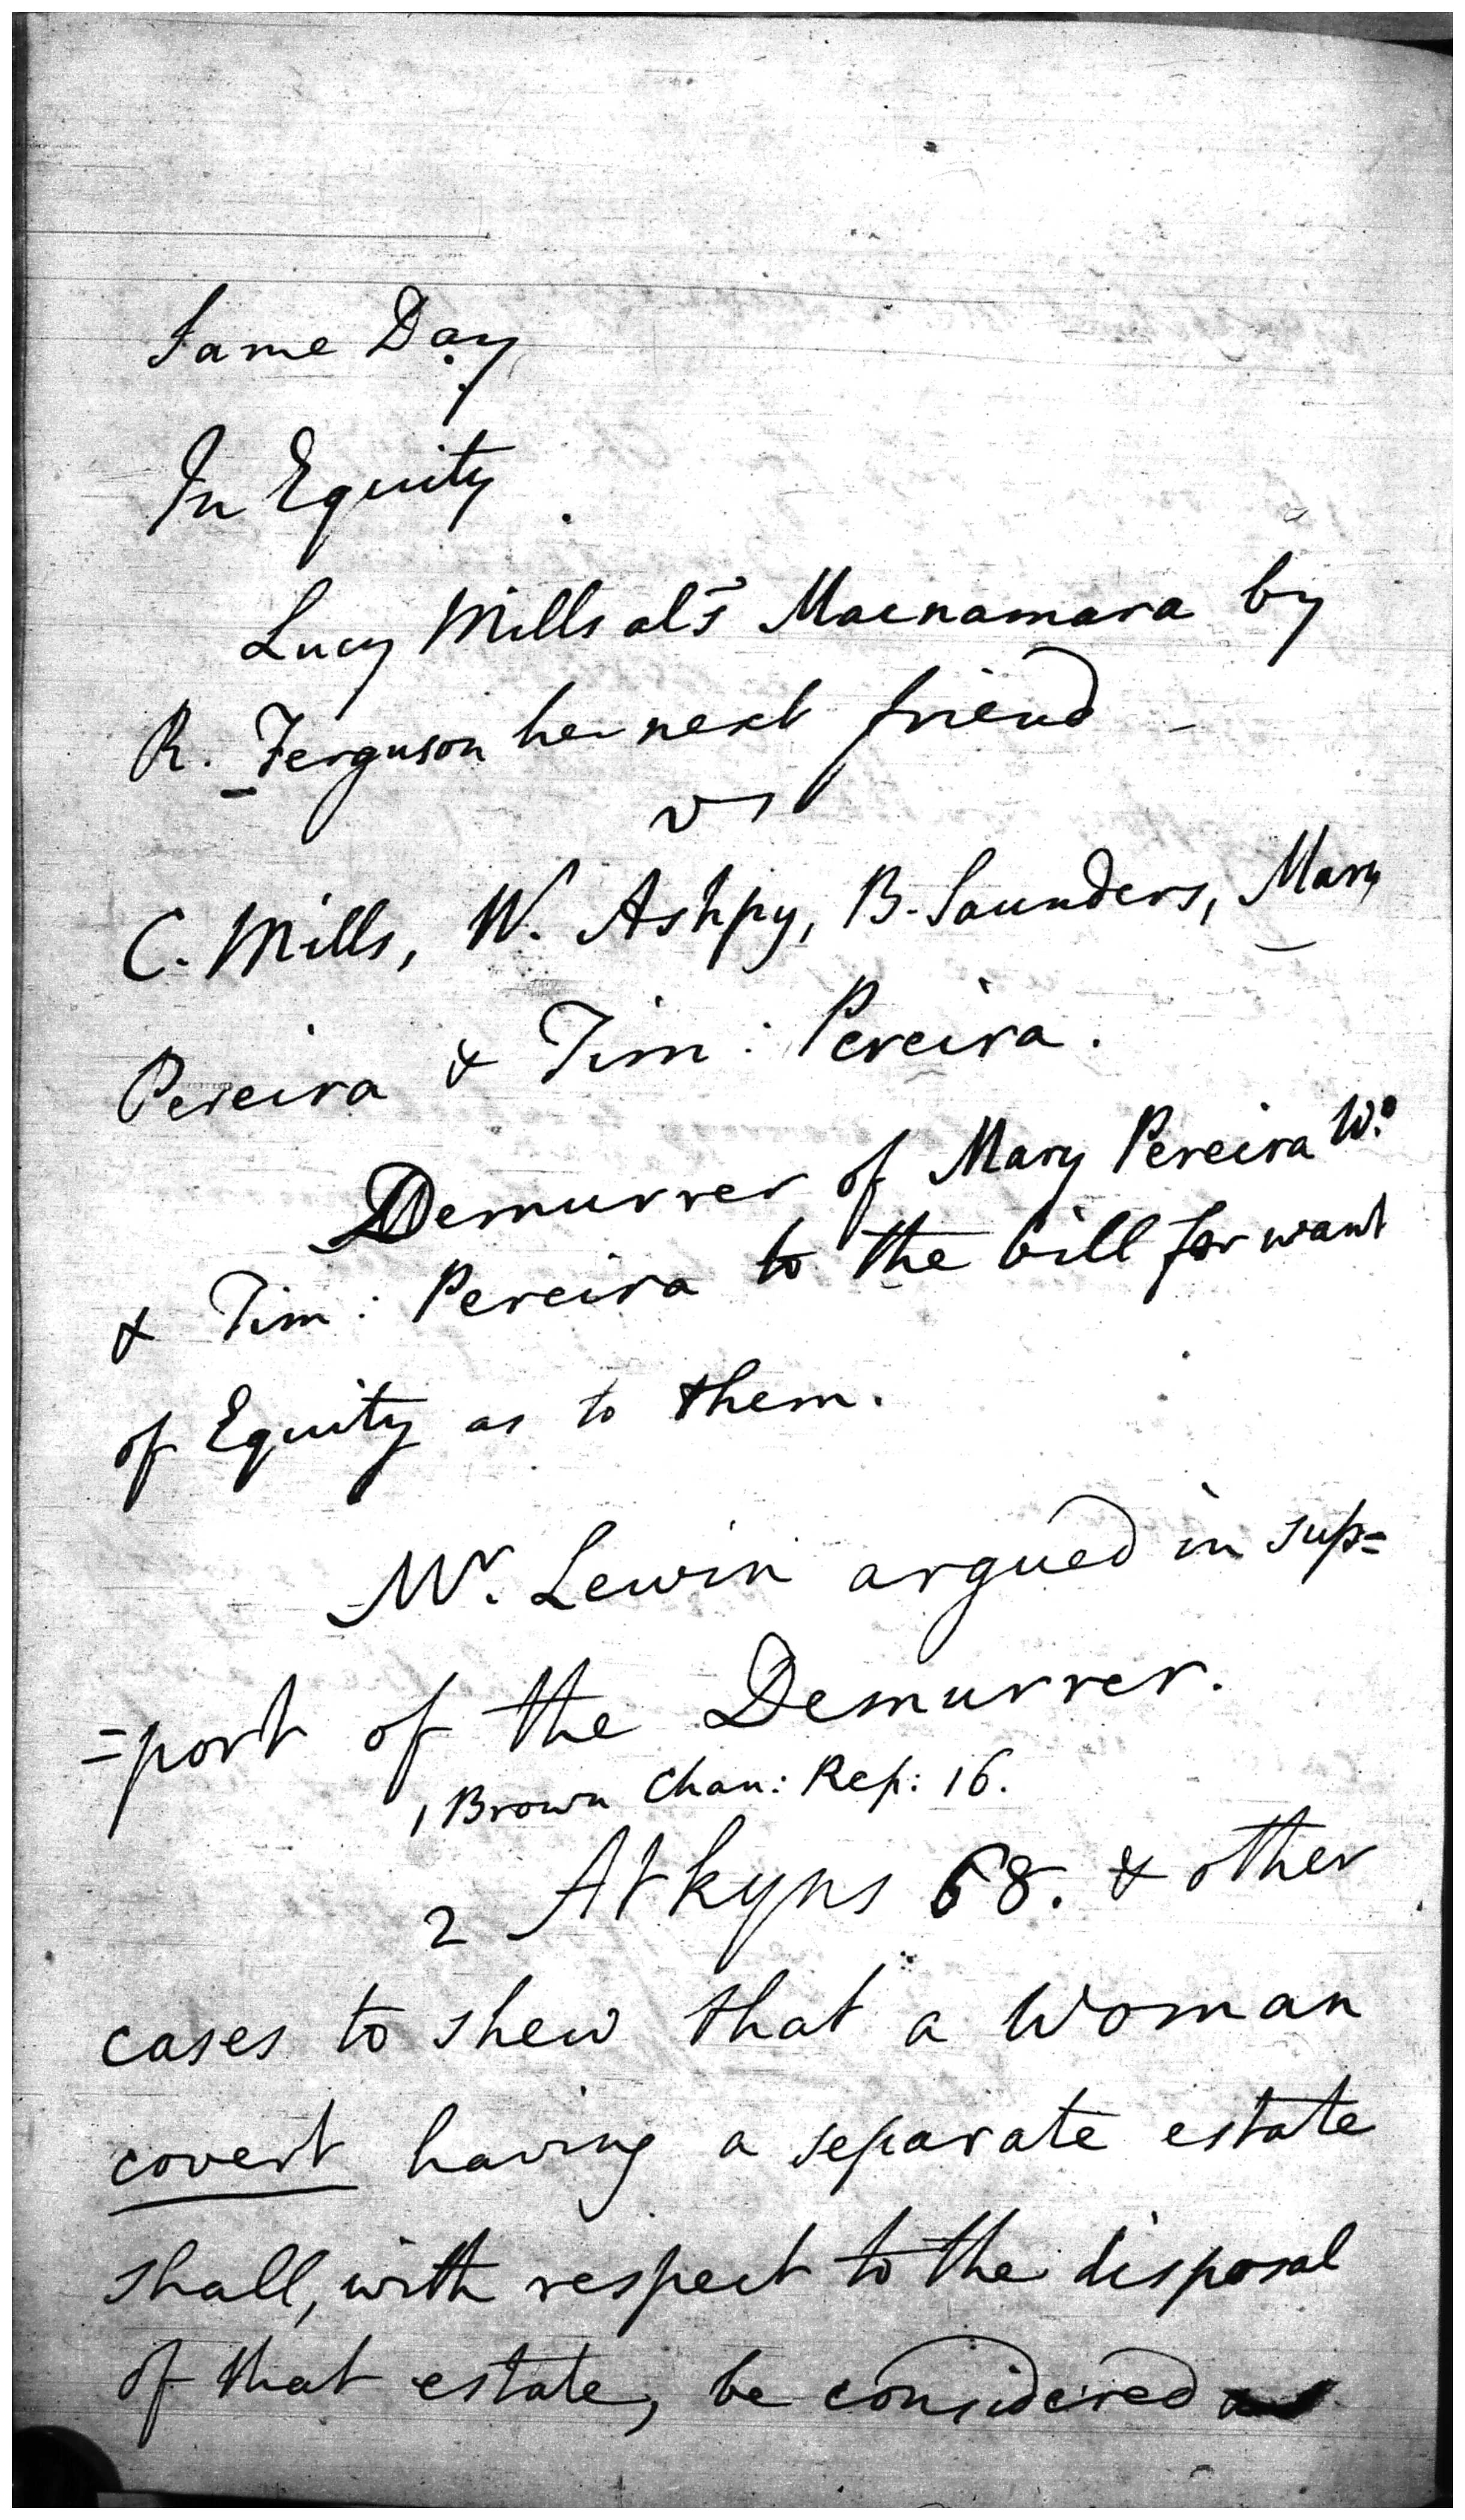 Same Day
In Equity
Lucy Mills als Macnamara by
R. Ferguson her next friend
vs
C. Mills, W. Ashpy, B. Saunders, Mary
Pereira & Tim: Pereira.
Demurrer of Mary Pereira Wo
& Tim: Pereira to the bill for want
of Equity as to them.
Mr. Lewin argued in sup=
=port of the Demurrer.
1 Brown Chan: Rep: 16.
2 Atkyns 68. & other
cases to shew that a Woman
covert having a separate estate
shall, with respect to the disposal
of that estate, be considered as